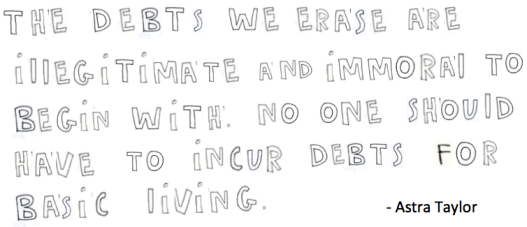 THE DEBTS WE ERASE ARE
iLLEGiTiMATE AND iMMORAL TO
BEGiN WiTH. NO ONE SHOULD
HAVE TO iNCUR DEBTS FOR
BASiC LiViNG.
- Astra Taylor